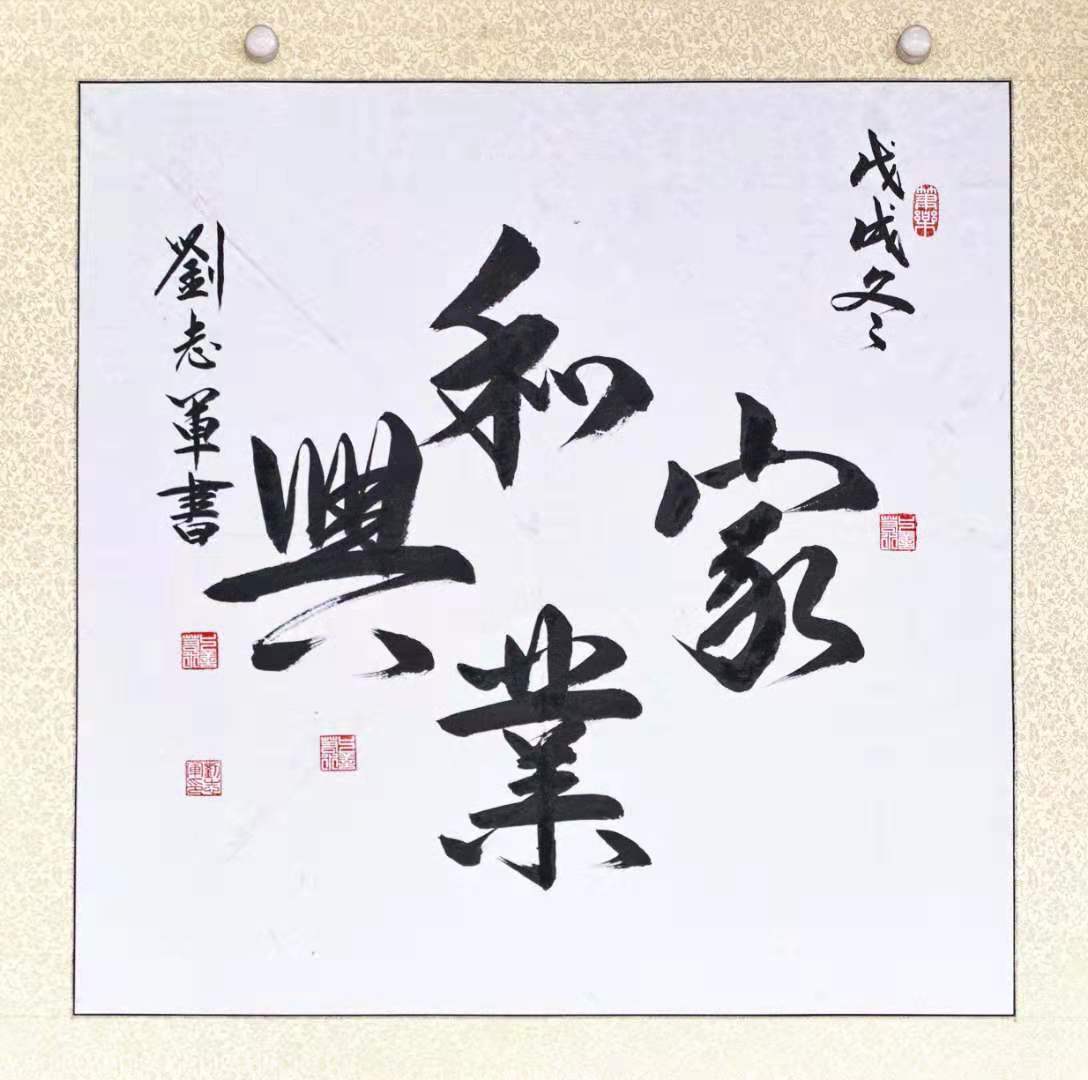 戊戌冬
家和業興
劉志軍書